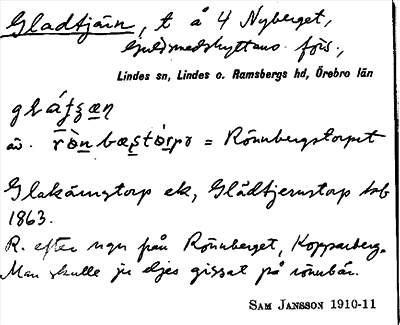 Gladtjärn, t å 4 Nyberget,
Guldsmedshyttans förs.,
Lindes sn, Lindes o. Ramsbergs hd, Örebro län
äv. = Rönnbergstorpet
Glakärnstorp ek, Glädtjernstorp
1863.
R. efter ngn från Rönnberget, Kopparberg.
Man skulle ju eljes gissat på rönnbär.
SAM JANSSON 1910-11